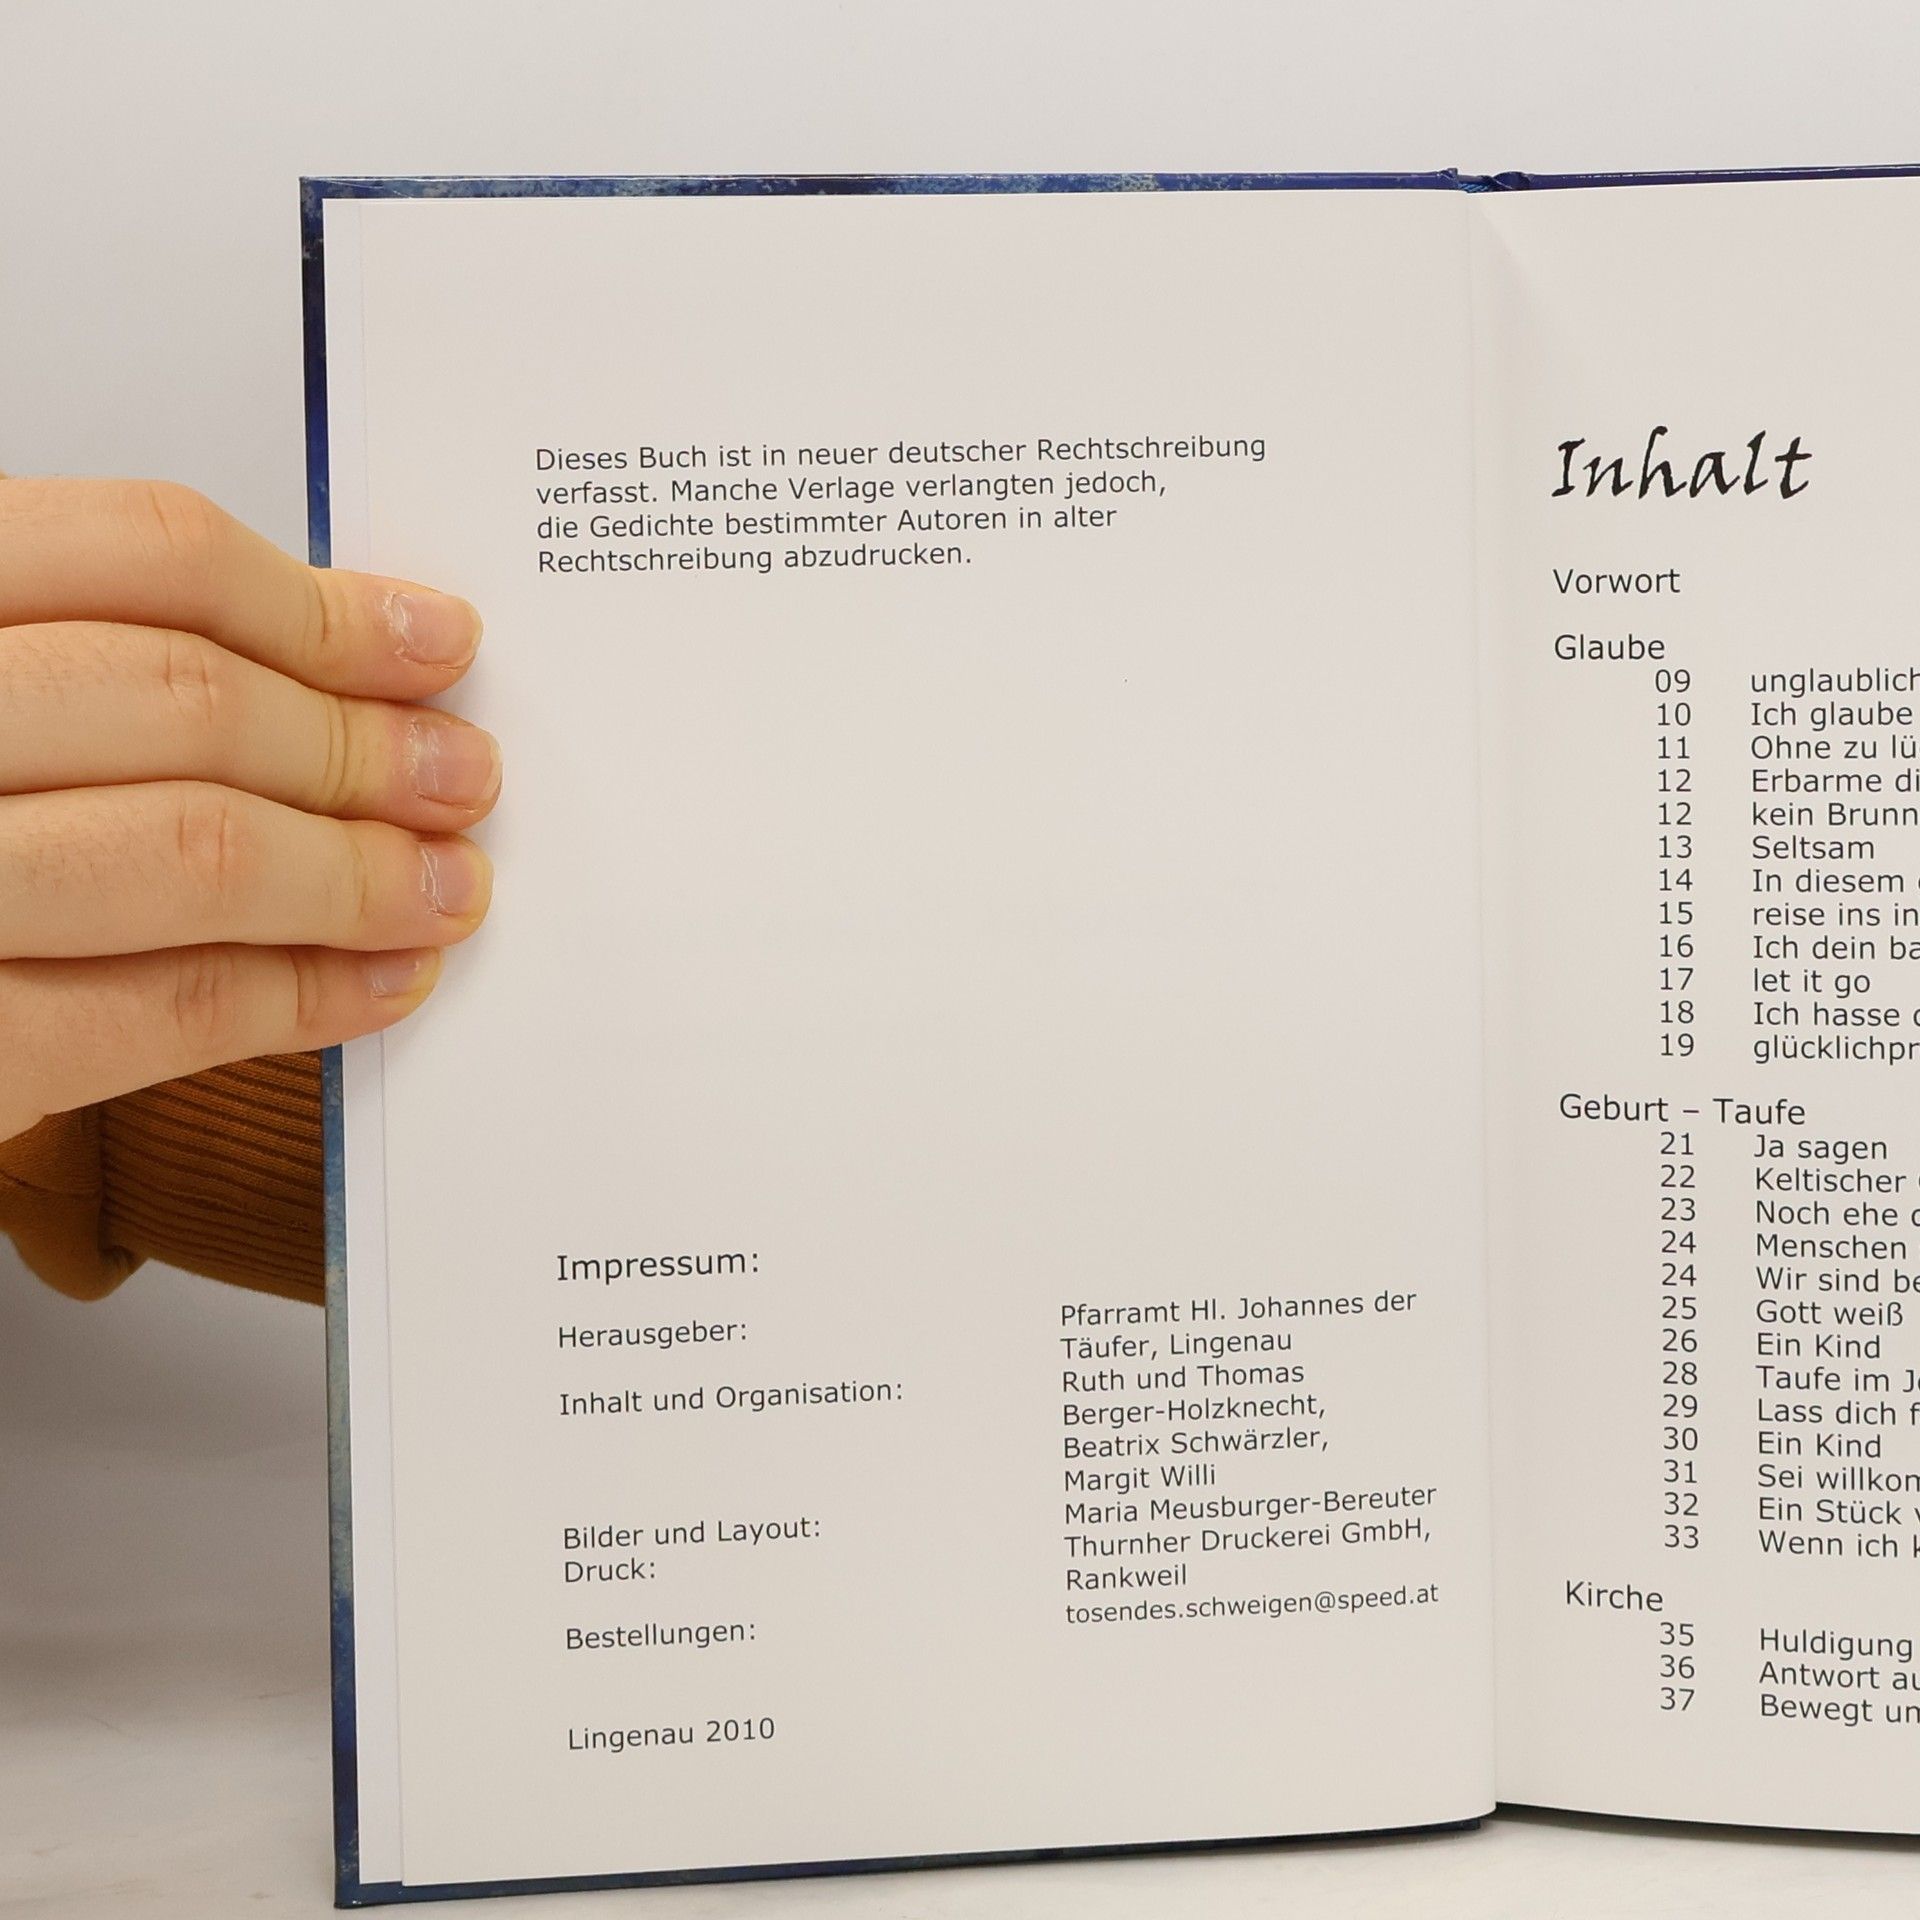 Dieses Buch ist in neuer deutscher Rechtschreibung
verfasst. Manche Verlage verlangten jedoch,
die Gedichte bestimmter Autoren in alter
Rechtschreibung abzudrucken.
Impressum:
Herausgeber:
Pfarramt Hl. Johannes der
Täufer, Lingenau
Inhalt und Organisation:
Ruth und Thomas
Berger-Holzknecht,
Beatrix Schwärzler,
Margit Willi
Bilder und Layout:
Maria Meusburger-Bereuter
Druck:
Thurnher Druckerei GmbH,
Rankweil
Bestellungen:
tosendes.schweigen@speed.at
Lingenau 2010
Inhalt
Vorwort
Glaube
09 unglaublich
10 Ich glaube
11 Ohne zu
12 Erbarme
12 kein
13 Seltsam
14 In diesem
15 reise ins
16 Ich dein
17 let it go
18 Ich hasse
19
Geburt – Taufe
21 Ja sagen
22 Keltischer
23 Noch ehe
24 Menschen
24 Wir sind
25 Gott weiß
26 Ein Kind
28 Taufe im
29 Lass dich
30 Ein Kind
31 Sei
32 Ein Stück
33 Wenn ich
Kirche
35 Huldigung
36 Antwort
37 Bewegt